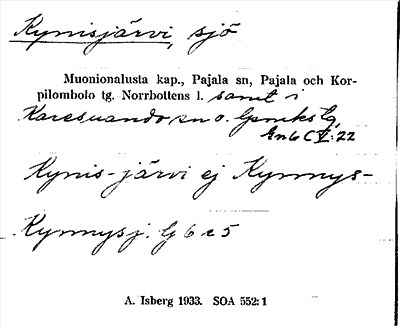 Kynisjärvi, sjö
Muonionalusta kap., Pajala sn, Pajala och Kor-
pilombolo tg. Norrbottens l. samt i
Karesuando sn o. lpmks tg,
Kynis-järvi ej Kynnys-
Kynnysj.
A. Isberg 1933. SOA 552:1